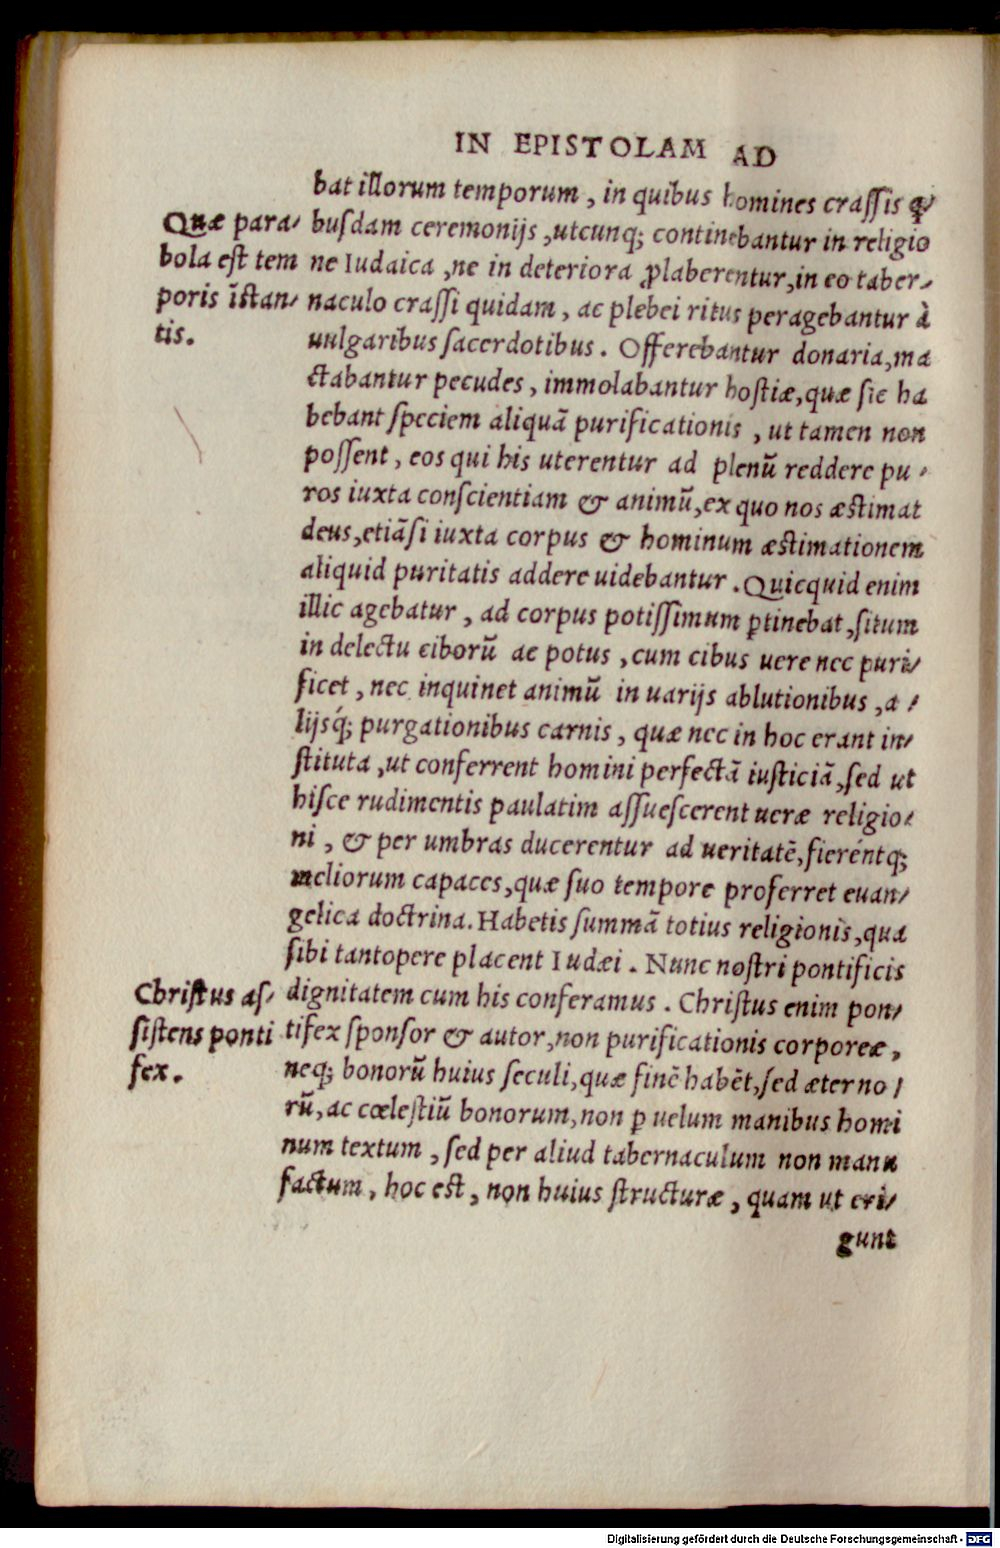 IN EPISTOLAM AD
bat illorum temporum, in quibus homines crassis q̃⸗
busdam ceremonijs, utcunq; continebantur in religio
ne Iudaica, ne in deteriora ꝓlaberentur, in eo taber⸗
naculo crassi quidam, ac plebei ritus peragebantur à
uulgaribus sacerdotibus. Offerebantur donaria, ma
ctabantur pecudes, immolabantur hostiæ, quæ sic ha
bebant speciem aliquã purificationis, ut tamen non
possent, eos qui his uterentur ad plenũ reddere pu⸗
ros iuxta conscientiam & animũ, ex quo nos æstimat
deus, etiãsi iuxta corpus & hominum æstimationem
aliquid puritatis addere uidebantur. Quicquid enim
illic agebatur, ad corpus potissimum ꝑtinebat, situm
in delectu ciborũ ac potus, cum cibus uere nec puri⸗
ficet, nec inquinet animũ in uarijs ablutionibus, a⸗
lijsq́; purgationibus carnis, quæ nec in hoc erant in⸗
stituta, ut conferrent homini perfectã iusticiã, sed ut
hisce rudimentis paulatim assuescerent ueræ religio⸗
ni, & per umbras ducerentur ad ueritatẽ, fieréntq;
meliorum capaces, quæ suo tempore proferret euan⸗
gelica doctrina. Habetis summã totius religionis, qua
sibi tantopere placent Iudæi. Nunc nostri pontificis
dignitatem cum his conferamus. Christus enim pon⸗
tifex sponsor & autor, non purificationis corporeæ,
neq; bonorũ huius seculi, quæ finẽ habẽt, sed æterno⸗
rũ, ac cœlestiũ bonorum, non ꝑ uelum manibus homi
num textum, sed per aliud tabernaculum non manu
factum, hoc est, non huius structuræ, quam ut eri⸗
gunt
Quæ para⸗
bola est tem
poris ĩstan⸗
tis.
Christus as⸗
sistens ponti
fex.
Digitalisierung gefördert durch die Deutsche Forschungsgemeinschaft - DFG